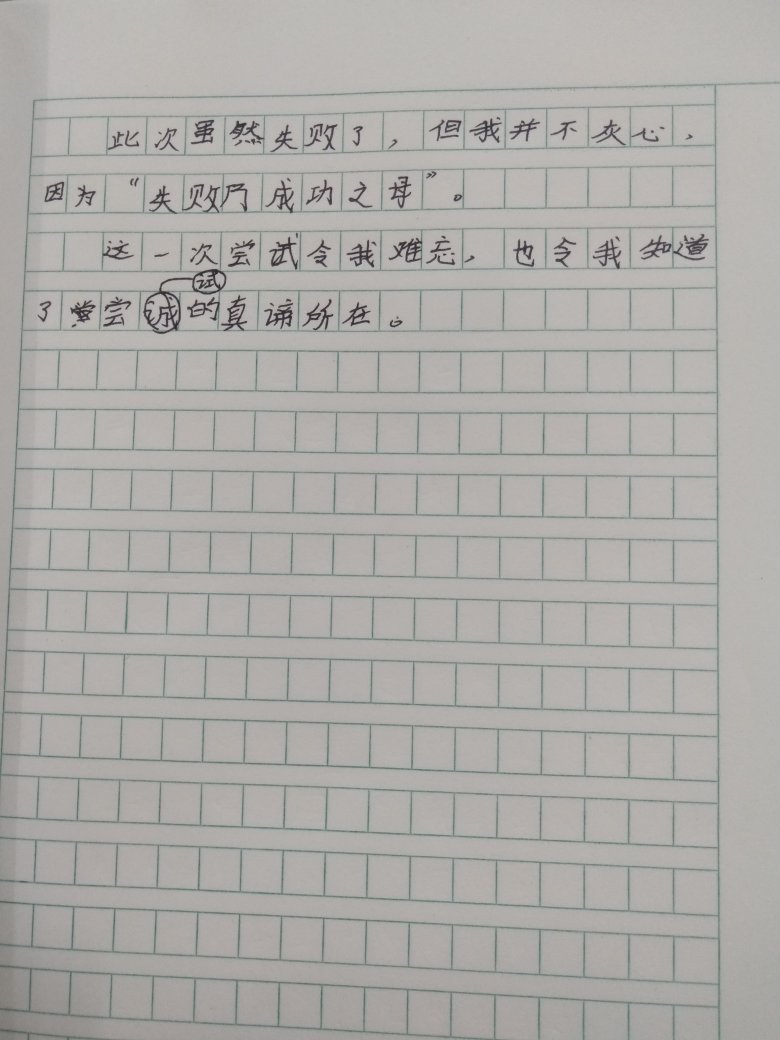 此次虽然失败了，但我并不灰心，
因为“失败乃成功之母”。
这一次尝试令我难忘，也令我知道
试
了尝诚的真谛所在。